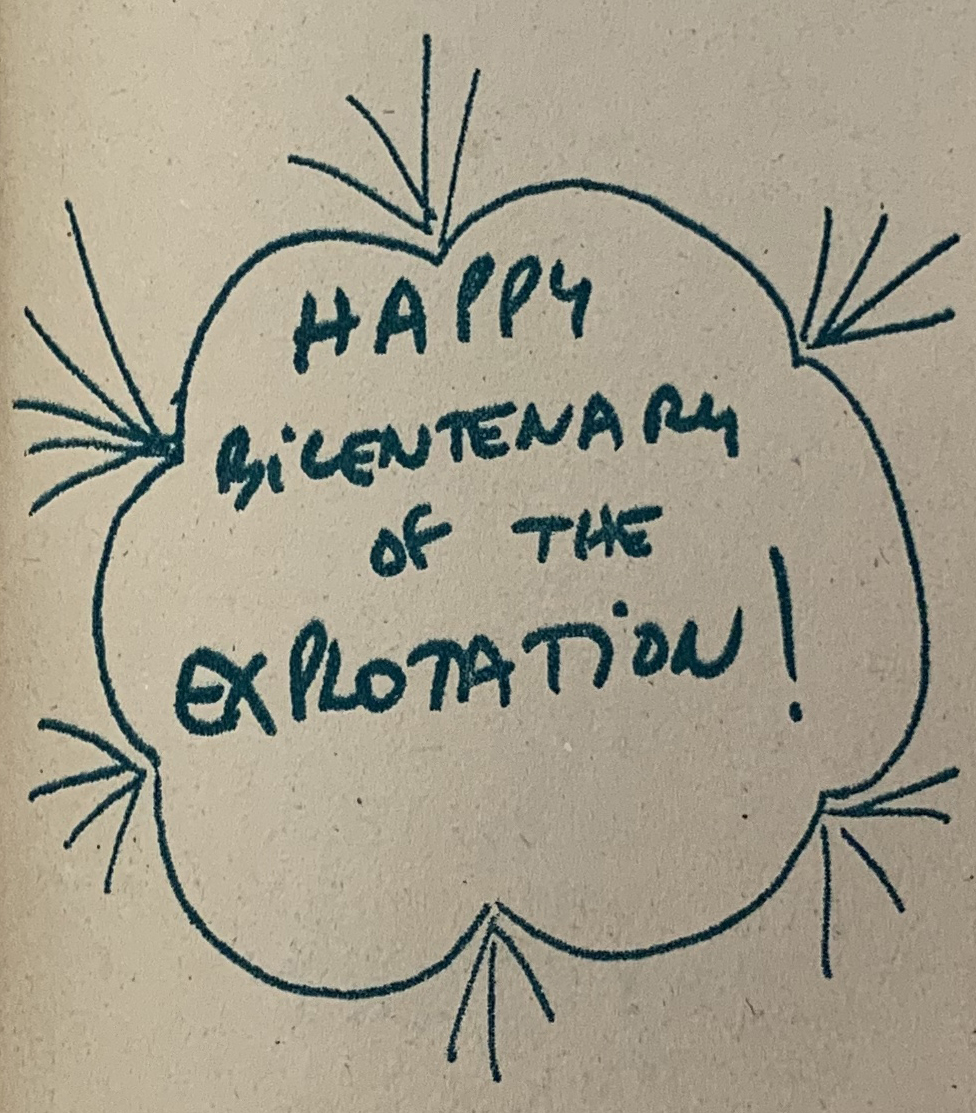 HAPPY
BiCENTENARY
OF THE
EXPLOTATiON!